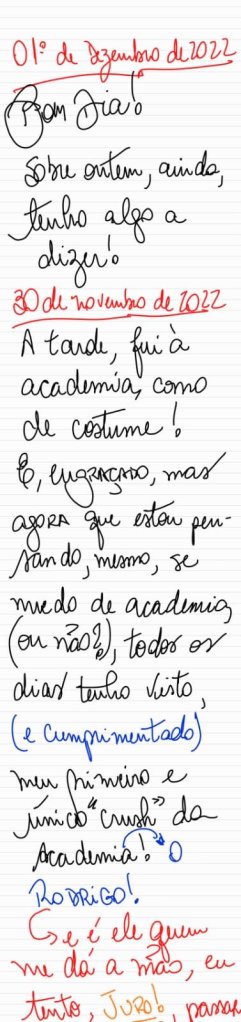 01º de Dezembro de 2022
Bom Dia!
Sobre ontem, ainda,
tenho algo a
dizer!
30 de novembro de 2022
A tarde, fui à
academia, como
de costume!
É, engraçado, mas
agora que estou pen-
sando, mesmo, se
mudo de academia,
(ou não?), todos os
dias tenho visto,
(e cumprimentado)
meu primeiro e
único "crush" da
academia! O
RODRIGO!
e é ele quem
me dá a mão, eu
tento, JURO!, passar